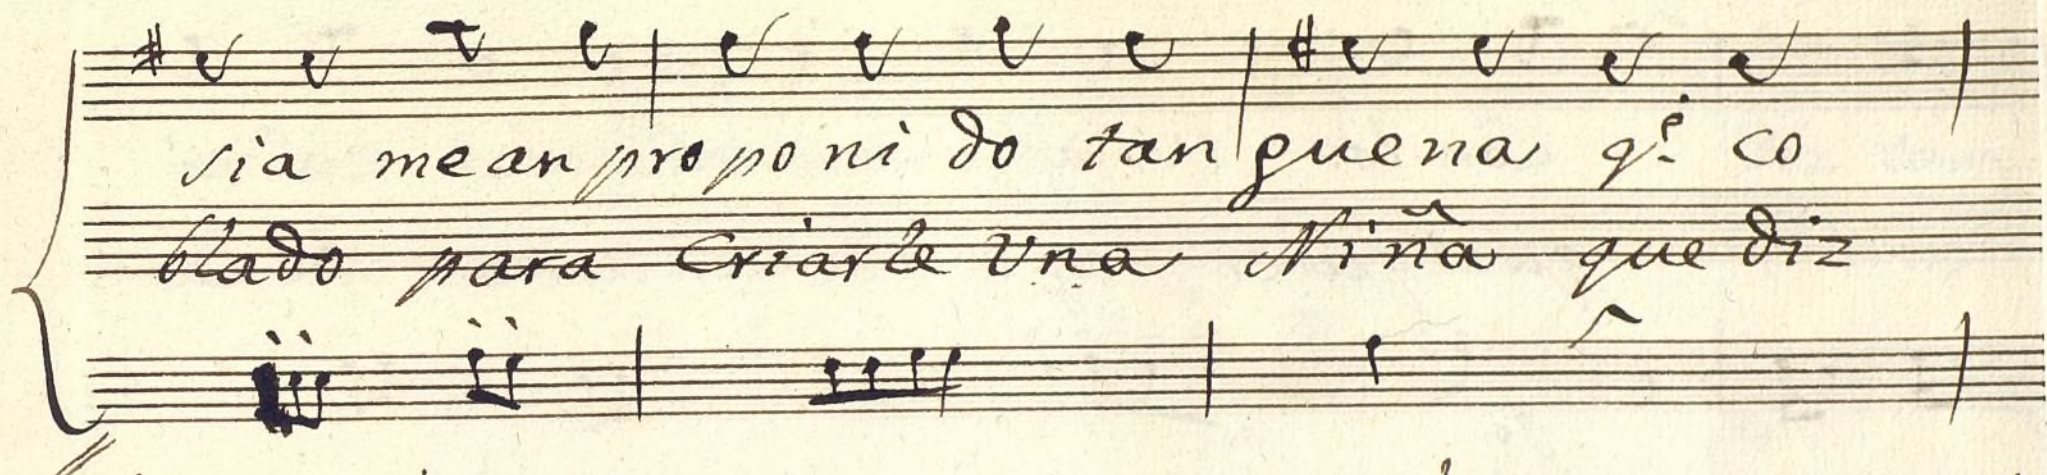 sia mean proponido tan guena q.e co
blado para Criarle Vna Niña que diz